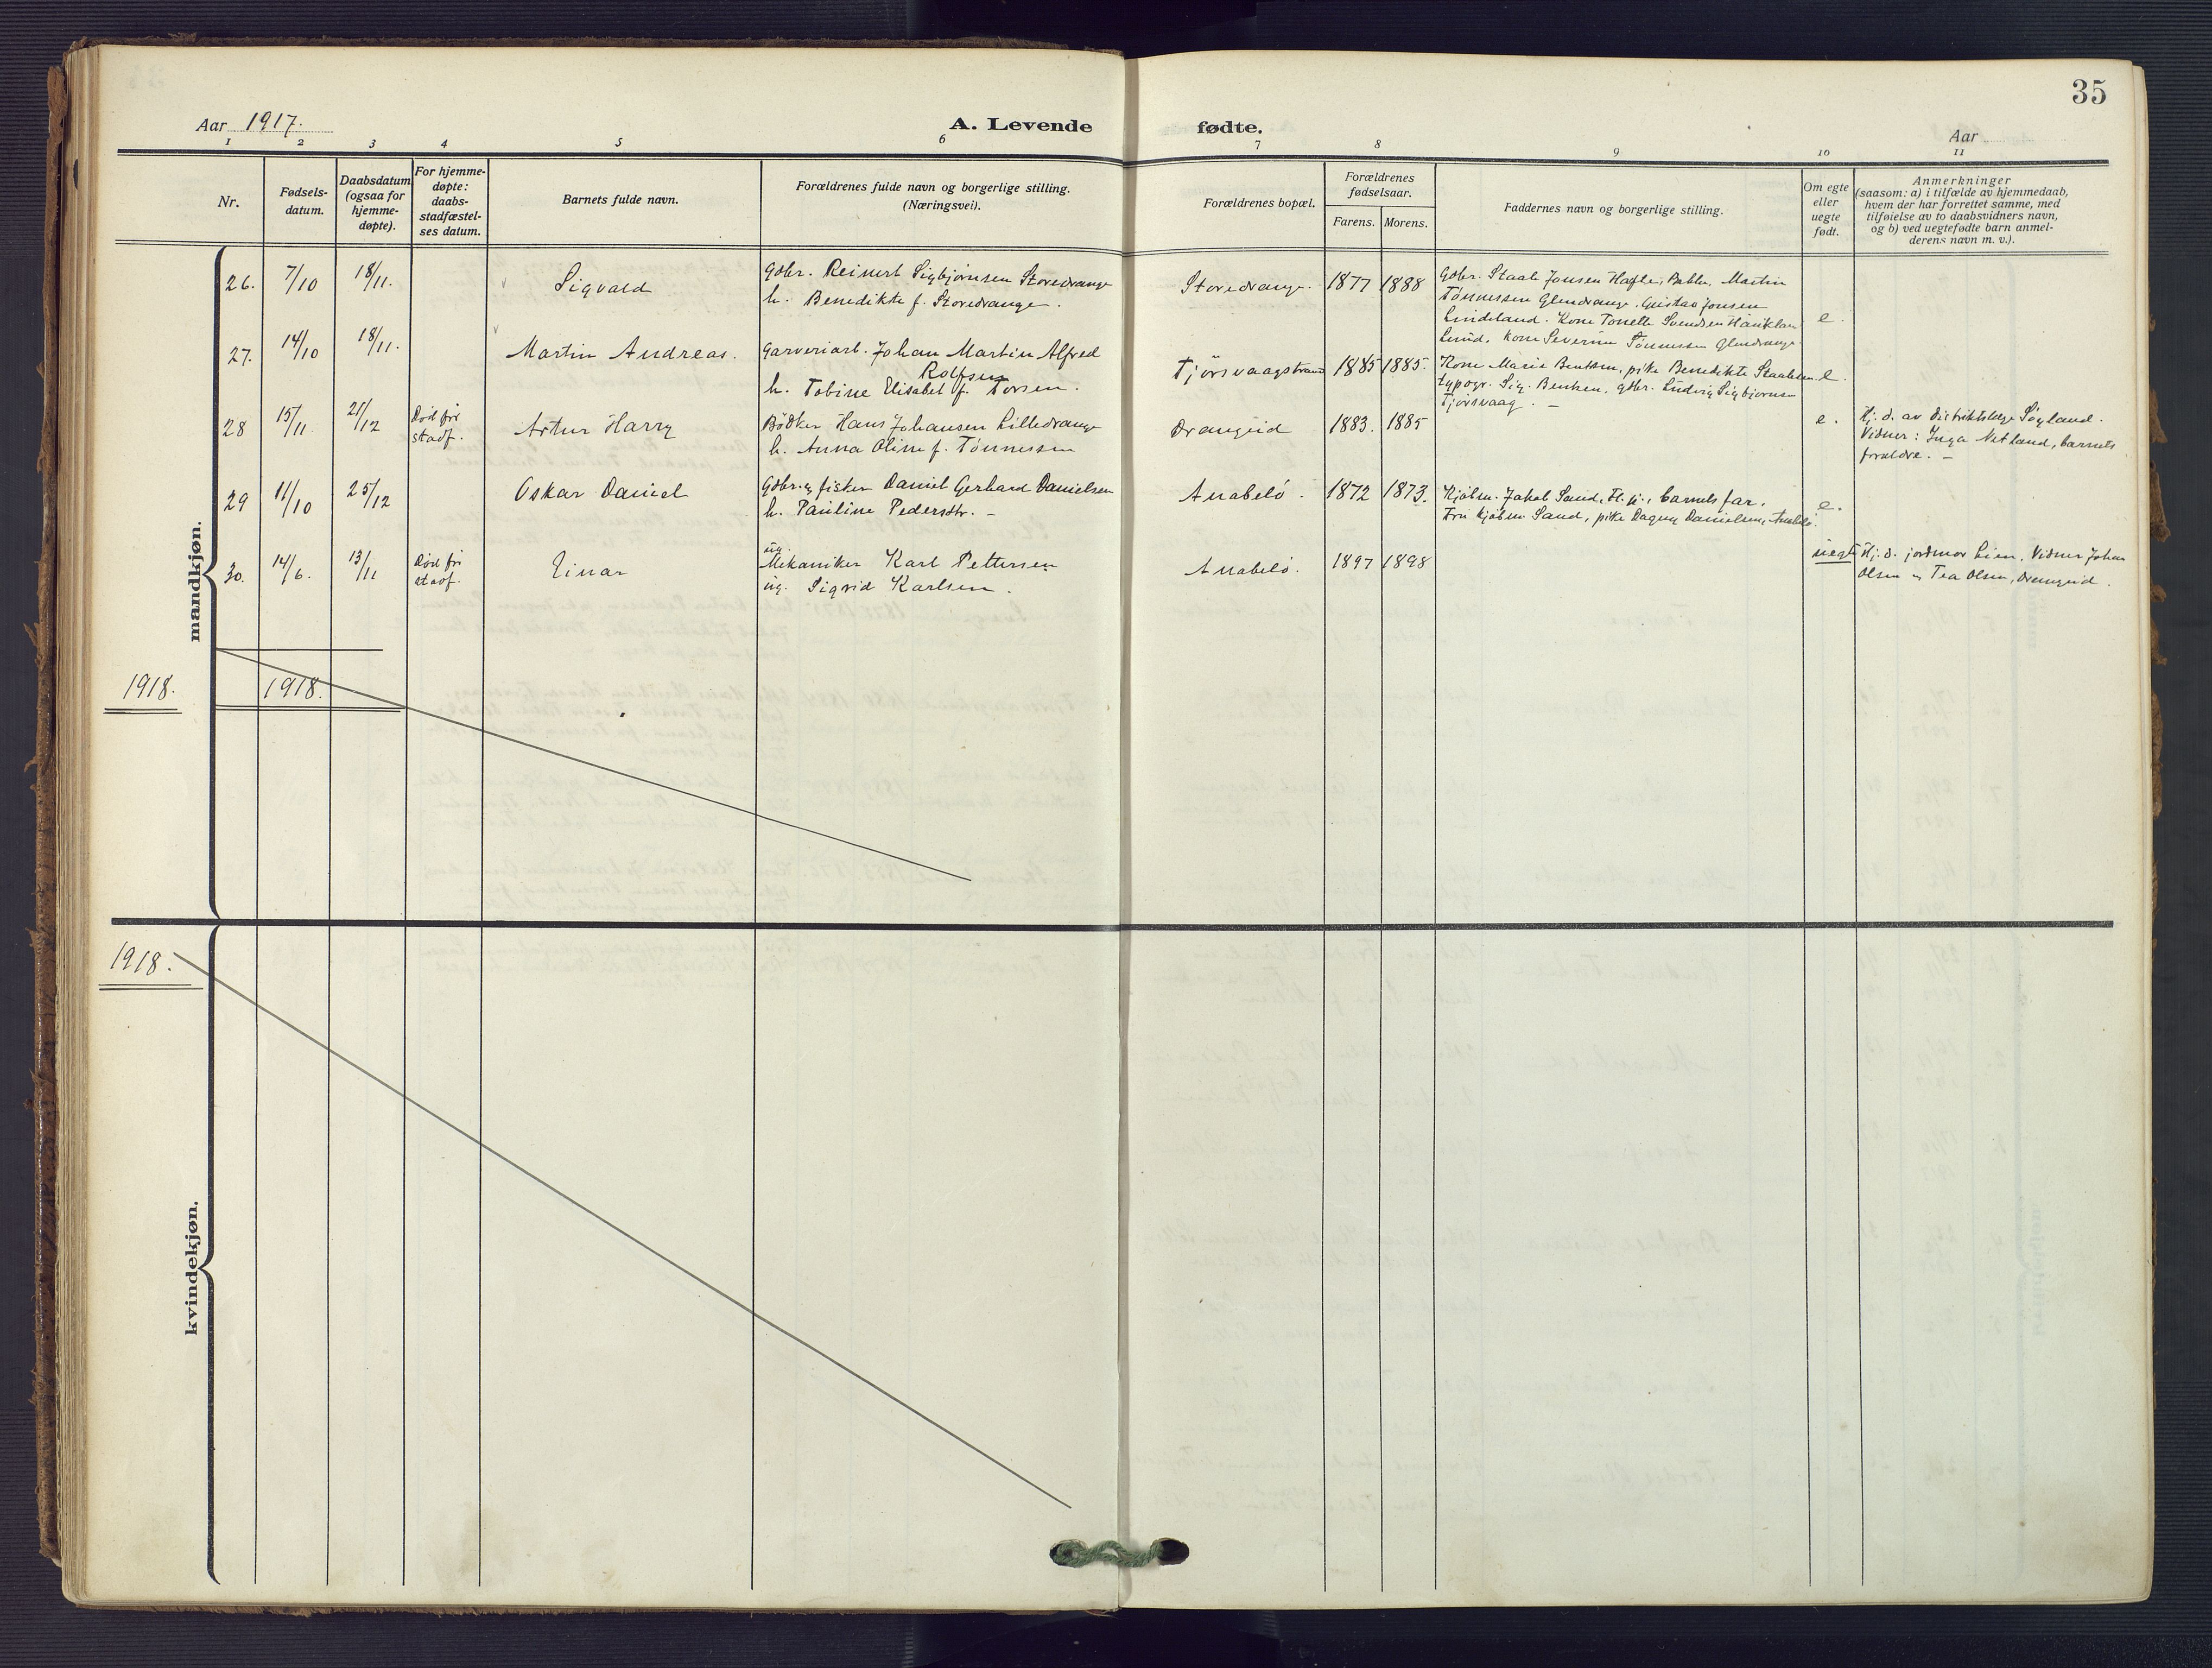 35
Aar 1917.
A. Levende fødte.
Aar
1 2 3 4 5 6 7 8 9 10 11
Nr.
Fødsels-
datum.
Daabsdatum
(ogsaa for
hjemme-
døpte).
For hjemme-
døpte:
daabs-
stadfæstel-
ses datum.
Barnets fulde navn.
Forældrenes fulde navn og borgerlige stilling.
(Næringsvei).
Forældrenes bopæl.
Forældrenes
fødselsaar.
Farens. Morens.
Faddernes navn og borgerlige stilling.
Om egte
eller
uegte
født.
Anmerkninger
(saasom: a) i tilfælde av hjemmedaab,
hvem der har forrettet samme, med
tilføielse av to daabsvidners navn,
og b) ved uegtefødte barn anmel-
derens navn m. v.).
mandkjøn.
26. 7/10 18/11. Sigvald
Gdbr. Reinert Sigbjørnsen Storedrange
h. Benedikte f. Storedrange.
Storedrange. 1877 1888
Gdbr. Staale Jonsen Martin
Tönnessen Glendrange, Gustav Jonsen
Lindeland. Kone Tonette Svendsen
Lund, kone Severine Tönnessen Glendrange.
e.
27. 14/10 18/11. Martin Andreas.
Garveriarb. Johan Martin Alfred
Rolfsen
h. Tobine Elisabet f. Torsen.
Tjörsvaagstrand 1885 1885.
Kone Marie Bentsen, pike Benedikte Staalesen
typogr. Sig. Bentsen, gdbr. Ludvig Sigbjørnsen
Tjörsvaag. –
e.
28 15/11 21/12 Död för
stadf.
Artur Harry
Bödker Hans Johansen Lilledrange
h. Anna Oline f. Tönnessen
Drangeid 1883. 1885
e.
Hj. d. av distriktslæge Søyland.
Vidner: Inga Netland, barnets
forældre. –
29 11/10 25/12 Oskar Daniel
Gdbr. og fisker Daniel Gerhard Danielsen
h. Pauline Pedersdtr. –
Anabelö. 1872 1873.
Kjøbm. Jakob Sand, Fl. fj., barnets far,
Fru kjøbm Sand, pike Dagny Danielsen, Anabelö.
e.
30. 14/6. 13/11 Död för
stadf.
Einar
ug.
Mekaniker Karl Pettersen
ug. Sigrid Karlsen.
Anabelö. 1897 1898
uegt
Hj. d. jordmor Lien. Vidner Johan
Olsen og Tea Olsen, Drangeid.
1918. 1918.
1918.
kvindekjøn.